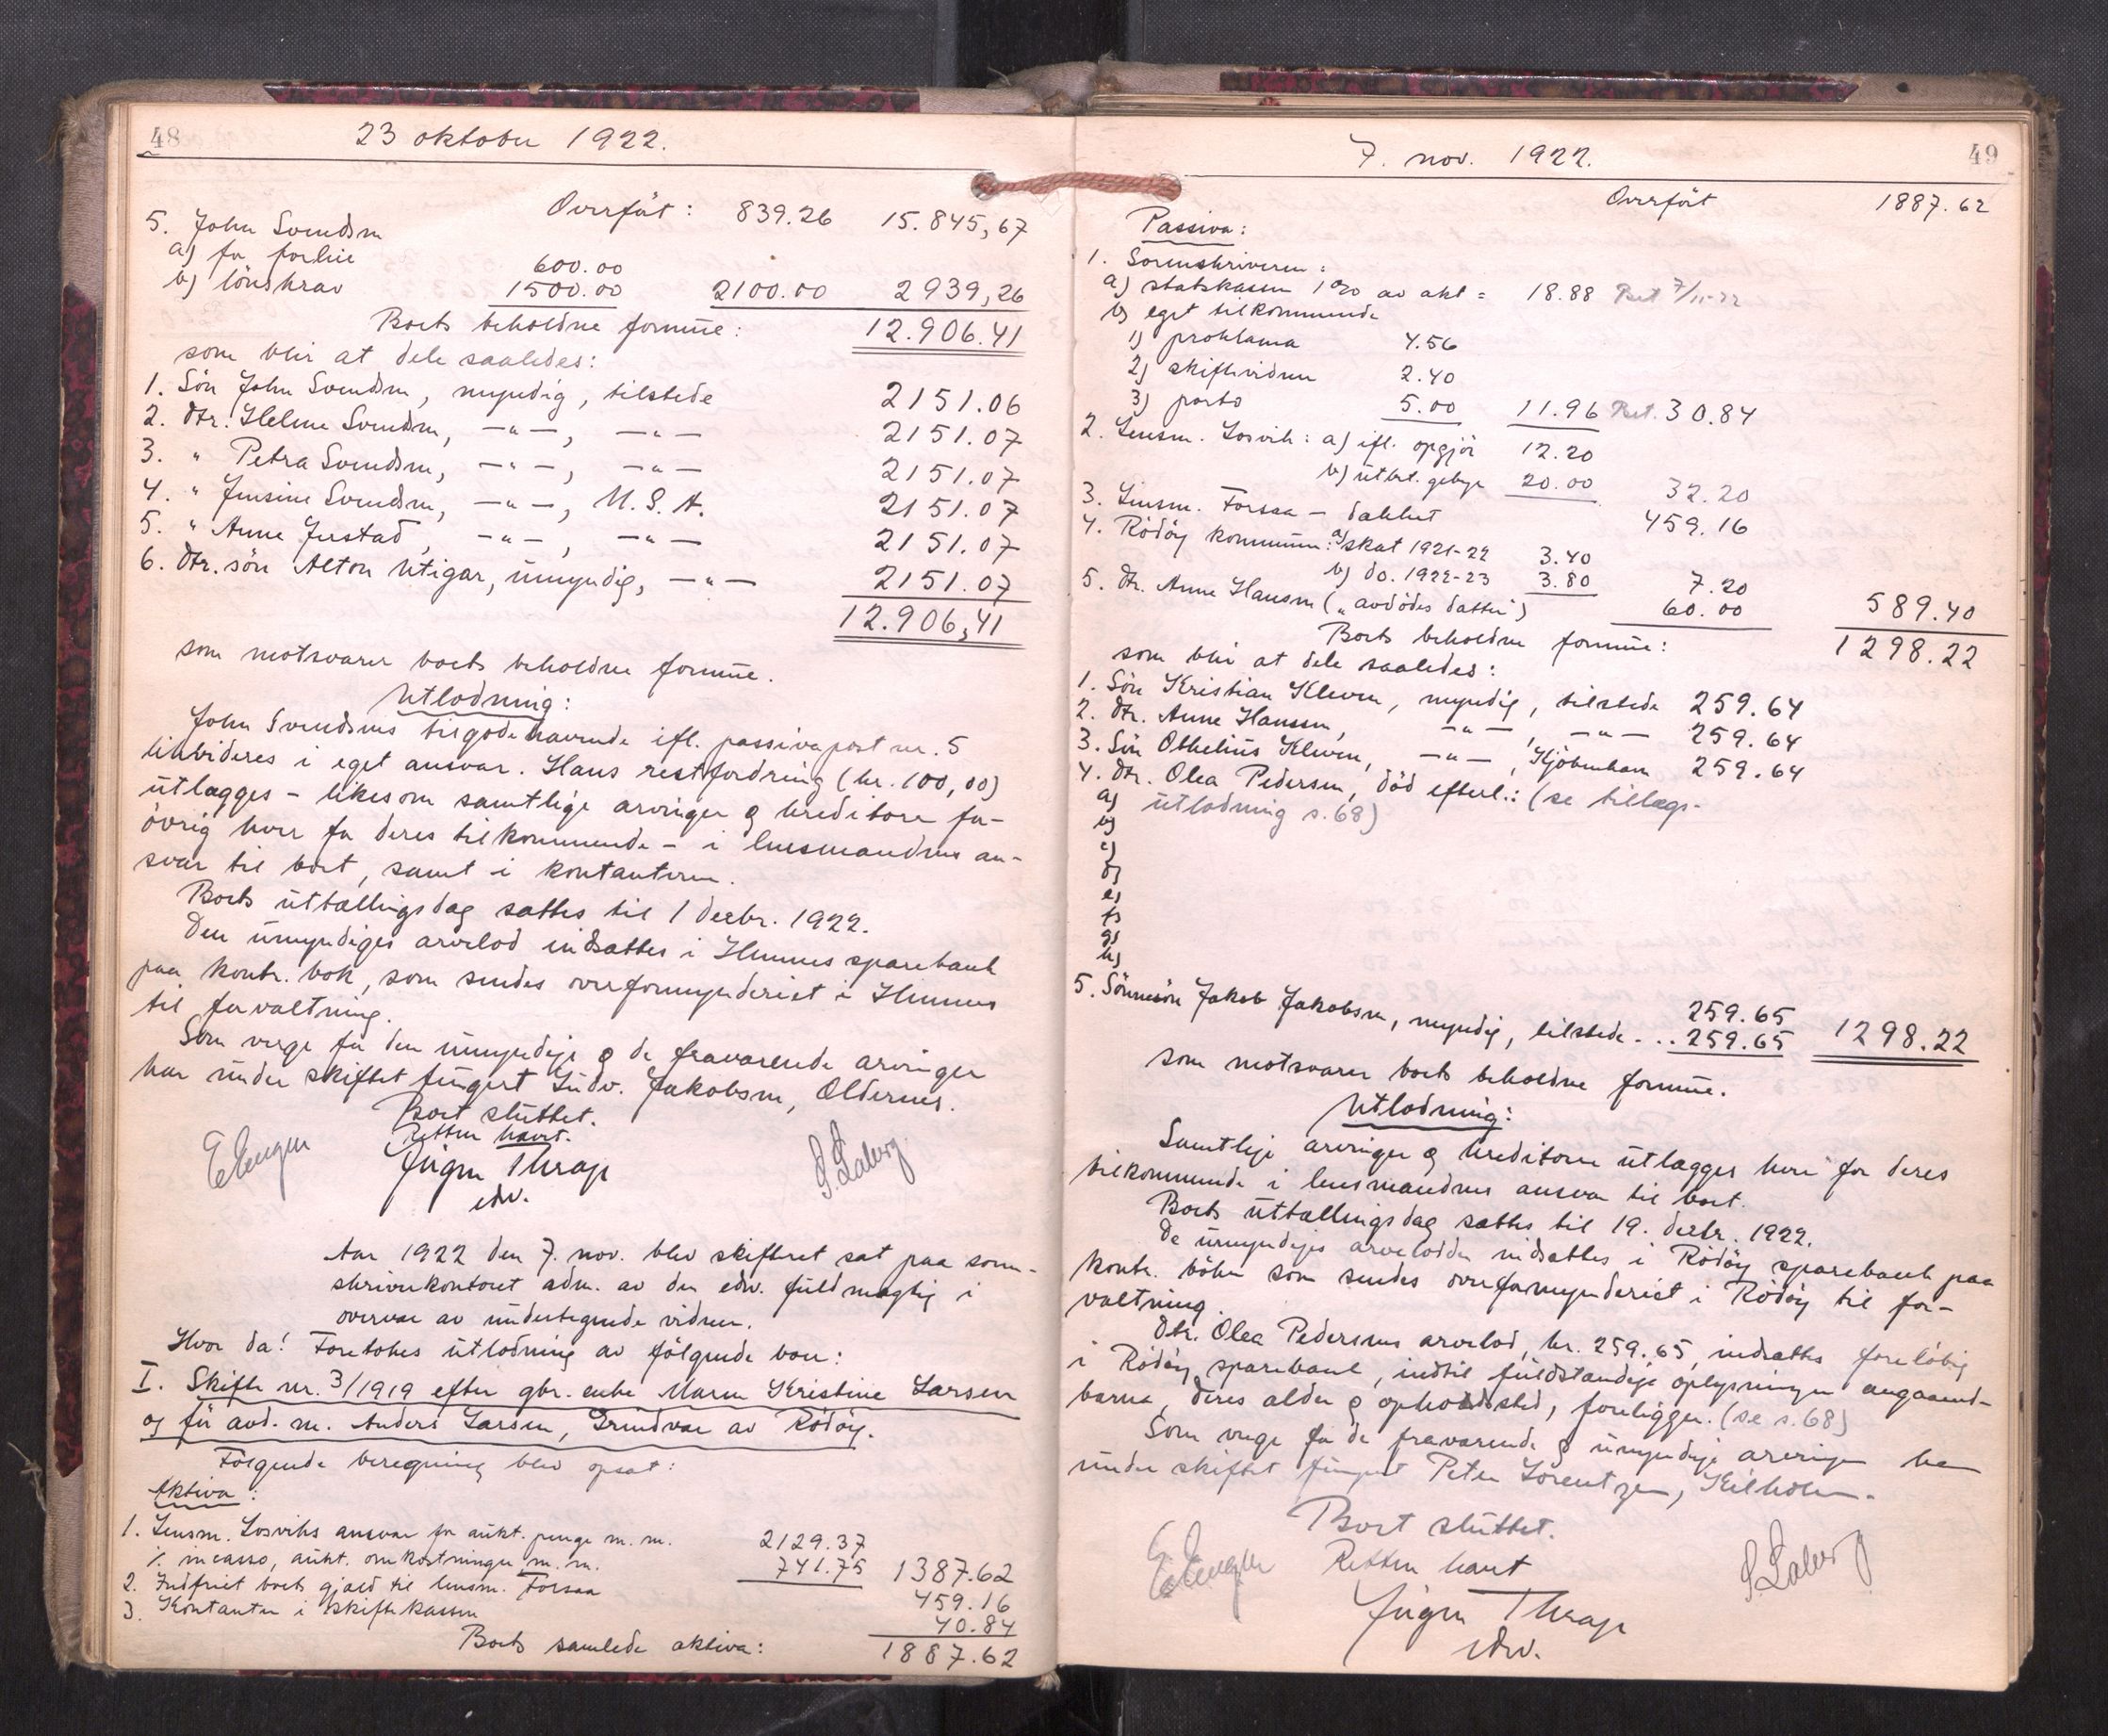 48
23 oktober 1922.
Overført: 839.26 15.845,67
5. John Svendsen
a) for forlii 600.00
b) lönskrav 1500.00 2100.00 2939,26
Boets beholdne formue: 12.906.41
som blir at dele saaledes:
1. Sön John Svendsen, myndig, tilstede 2151.06
2. Dtr. Helene Svendsen, —"—, —"— 2151.07
3. " Petra Svendsen, —"—, —"— 2151.07
4. " Jensine Svendsen, —"—, U.S.A. 2151.07
5. " Anne Justad, —"—, —"— 2151.07
6. Dtr. sön Alton Utigar, umyndig, —"— 2151.07
12.906,41
som motsvarer boets beholdne formue.
Utlodning:
John Svendsens tilgodehavende ifl. passivapost nr. 5
likvideres i eget ansvar. Hans restfordring (kr. 100,00)
utlægges – likesom samtlige arvinger & kreditorer for-
övrig hver for deres tilkommende – i lensmandens an-
svar til boet, samt i kontanterne.
Boets utbetallingsdag sættes til 1 decbr. 1922.
Den umyndiges arvelod indsættes i Hemnes sparebank
paa kontr. bok, som sendes overformynderiet i Hemnes
til forvaltning.
Som verge for den umyndige & de fraværende arvinger
har under skiftet fungert Ludv. Jakobsen, Oldernes.
Boet sluttet.
Retten hævet.
Jürgen Thrap
edv.
Aar 1922 den 7. nov. blev skifteret sat paa soren-
skriverkontoret adm. av den edv. fuldmægtig i
overvær av undertegnede vidner.
Hvor da! Foretokes utlodning av følgende boer:
I. Skifte nr. 3/1919 efter gbr. enke Maren Kristine Larsen
og før avd. m. Anders Larsen, Grundvær av Rödöy.
Følgende beregning blev opsat:
Aktiva:
1. Lensm. Losviks ansvar for aukt. penge m. m. 2129.37
÷ incasso, aukt. omkostninger m. m. 741.75 1387.62
2. Indfriet boets gjæld til lensm. Forsaa 459.16
3. Kontanter i skiftekassen 40.84
Boets samlede aktiva: 1887.62
49
7. nov. 1922.
Overført 1887.62
Passiva:
1. Sorenskriveren:
a) statskassen 1% av akt = 18.88 Bet 7/11-22
b) eget tilkommende
1) proklama 4.56
2) skiftevidner 2.40
3) porto 5.00 11.96 Bet. 30.84
2. Lensm. Losvik: a) ifl. opgjör 12.20
b) utbet. gebyr 20.00 32.20
3. Lensm. Forsaa – dækket 459.16
4. Rödöy kommune: a) skat 1921-22 3.40
b) do. 1922-23 3.80 7.20
5. Dtr. Anne Hansen („avdödes datter") 60.00 589.40
Boets beholdne formue: 1298.22
som blir at dele saaledes:
1. Sön Kristian Kleven, myndig, tilstede 259.64
2. Dtr. Anne Hanssen, —"—, —"— 259.64
3. Sön Othelius Kleven, —"—, Kjöbenhavn 259.64
4. Dtr. Olea Pedersen, död efterl.: (se tillægs-
a) utlodning s. 68)
b)
c)
d)
e)
f)
g)
h) 259.65
5. Sönnesön Jakob Jakobsen, myndig, tilstede... 259.65 1298.22
som motsvarer boets beholdne formue.
Utlodning:
Samtlige arvinger & kreditorer utlægges hver for deres
tilkommende i lensmandens ansvar til boet.
Boets utbetallingsdag sættes til 19. decbr. 1922.
De umyndiges arvelodder indsættes i Rödöy sparebank paa
kontr. böker som sendes overformynderiet i Rödöy til for-
valtning.
Dtr. Olea Pedersens arvelod, kr. 259.65, indsættes foreløbig
i Rödöy sparebank, indtil fuldstændige oplysninger angaaende
barna, deres alder & opholdssted, foreligger. (se s. 68)
Som verge for de fraværende & umyndige arvinger har
under skiftet fungert Peter Lorentzen, Kilholm.
Boet sluttet.
Retten hævet
Jürgen Thrap
edv.